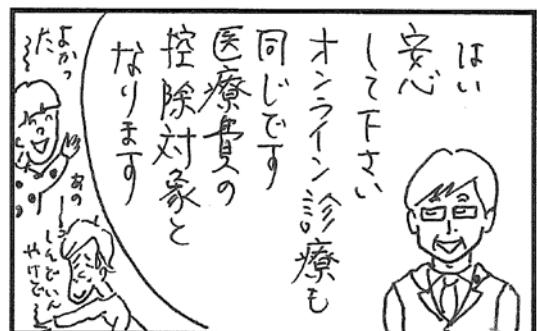 はい
安心
して下さい
オンライン診療も
同じです
医療費の
控除対象と
なります
よかっ
た〜
あの〜
しんどいん
やけど